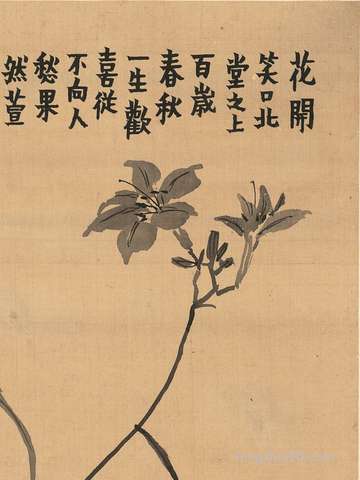 花開
笑口北
堂之上
百歲
春秋
一生歡
喜從
不向人
愁果
然萱